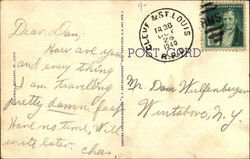 CLEVE & ST. LOUIS
TR 28
1940
R.P.O.
RMS
POST CARD
Dear Dan,
How are you
and every thing
I am traveling
pretty damn fast
Have no time, Will
write later. Chas.
Mr Dan Wulfenberger
Wurtsboro, N.Y.